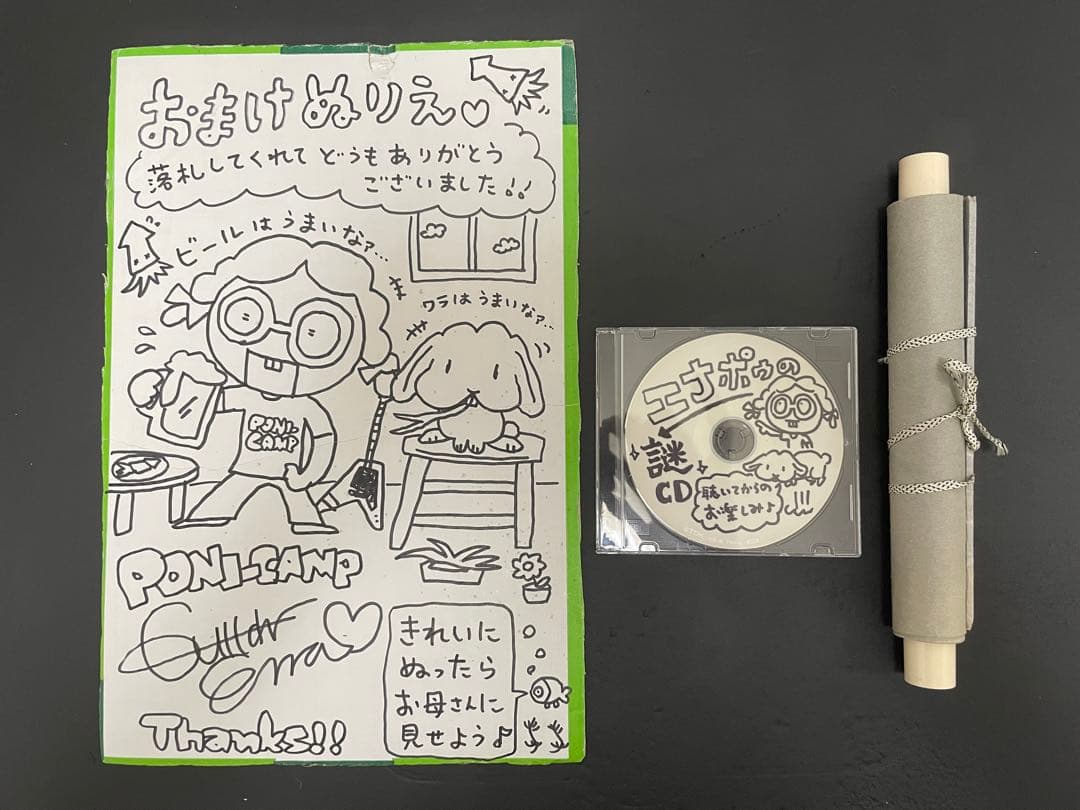 おまけぬりえ♡
落札してくれてどうもありがとう
ございました!!
ビールはうまいなァ…
ワラはうまいなァ…
PONI-
CAMP
PONI-CAMP
Thanks!!
きれいに
ぬったら
お母さんに
見せよう♪
エナポゥの
謎
CD
聴いてからの
お楽しみよ